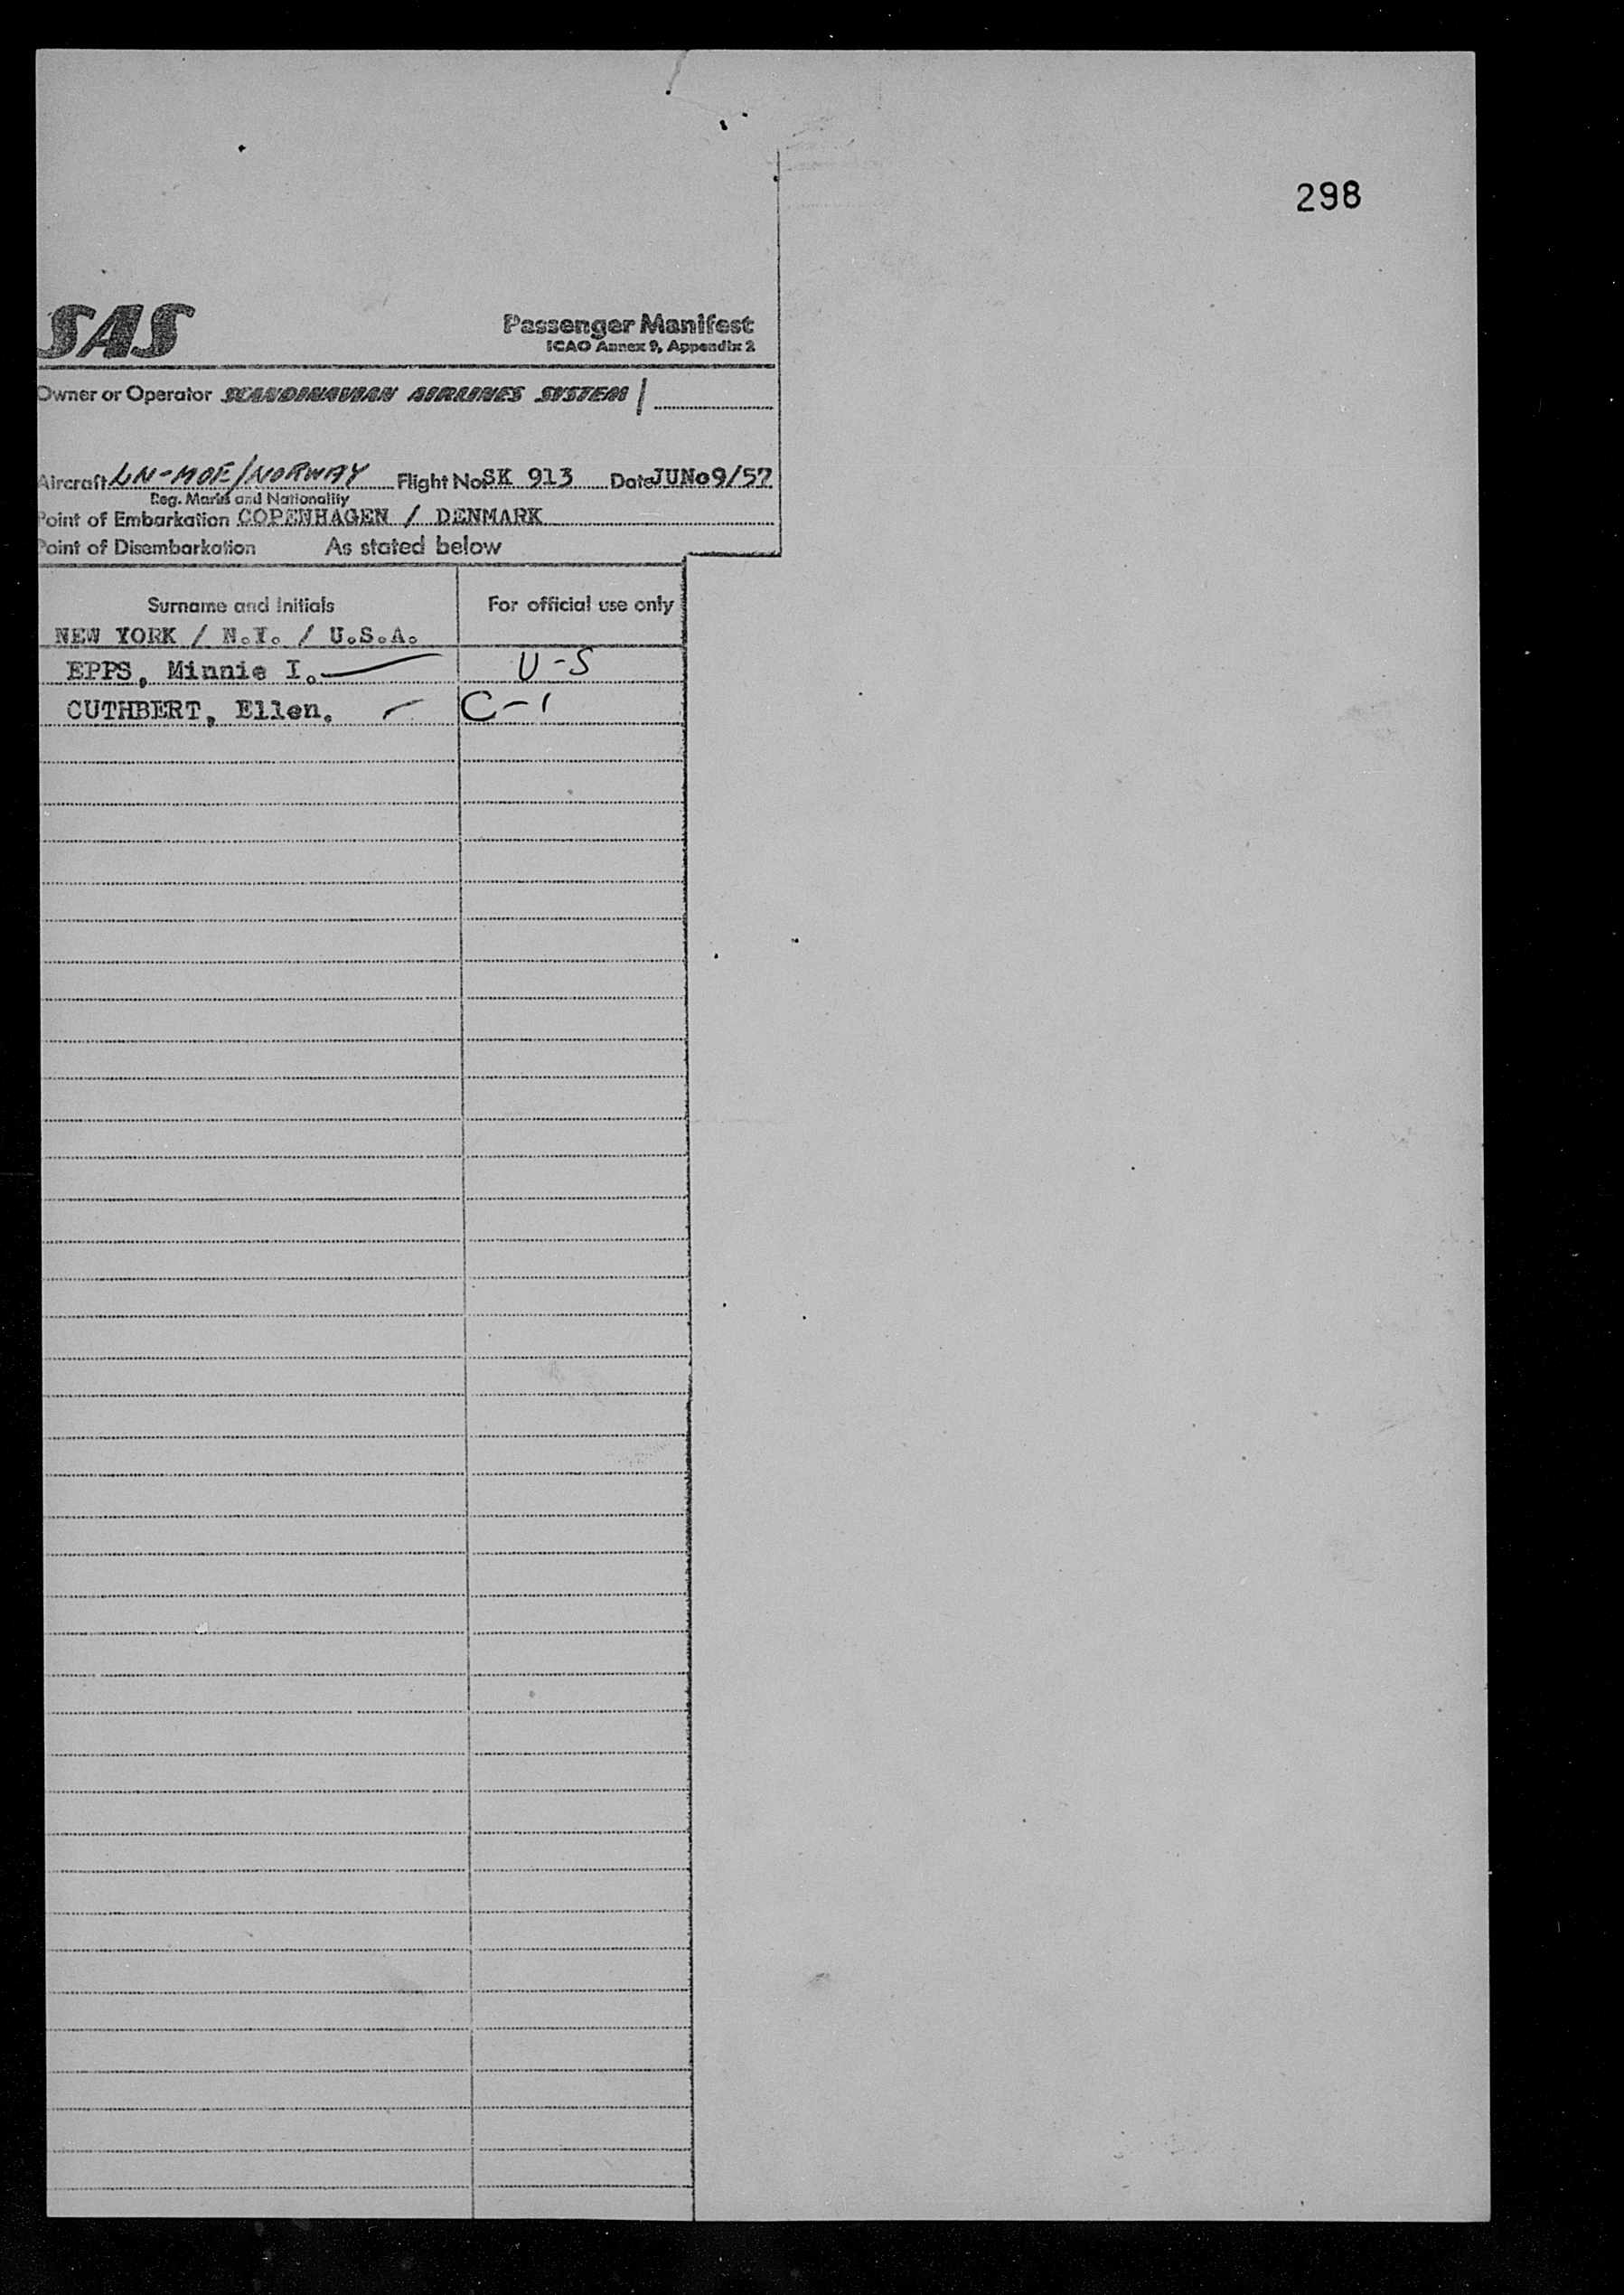 298
SAS
Passenger Manifest
ICAO Annex 9, Appendix 2
Owner or Operator SCANDINAVIAN AIRLINES SYSTEM
Aircraft LN-MOE/NORWAY Flight No. SK 913 Date JUN.9/57
Reg. Marks and Nationality
Point of Embarkation COPENHAGEN / DENMARK
Point of Disembarkation As stated below
Surname and Initials For official use only
NEW YORK / N.Y. / U.S.A.
EPPS, Minnie I. U-S
CUTHBERT, Ellen. C-1